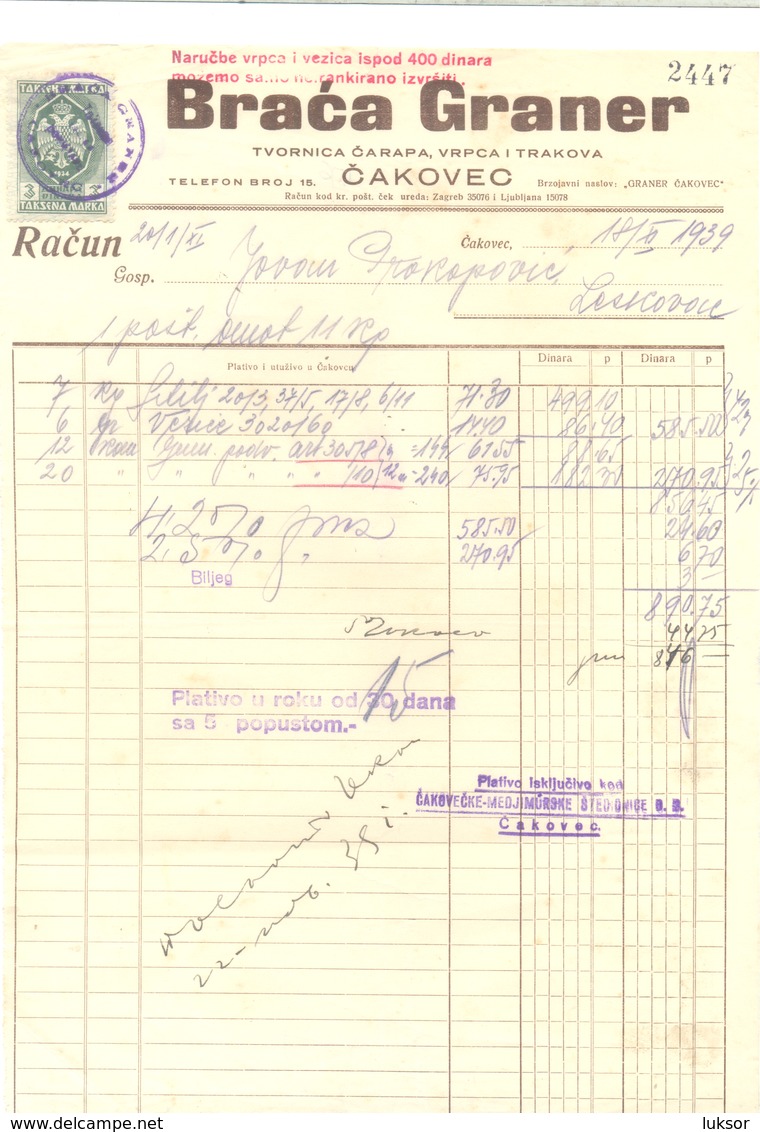 Naručbe vrpca i vezica ispod 400 dinara
možemo samo nefrankirano izvršiti.
2447
TAKSENA MARKA
1934
3 DINARA 3
TAKSENA MARKA
GRANER
Braća Graner
TVORNICA ČARAPA, VRPCA I TRAKOVA
TELEFON BROJ 15. ČAKOVEC Brzojavni naslov: „GRANER ČAKOVEC"
Račun kod kr. pošt. ček ureda: Zagreb 35076 i Ljubljana 15078
Račun 20/1/XI Čakovec, 18/XI 1939
Gosp. Jovan Prokopović,
Leskovac
1 pošt. omot 11 kg
Plativo i utuživo u Čakovcu Dinara p Dinara p
7 kg 20/3, 37/5, 17/8, 6/11 71.30 499.10
6 gr Vezice 3020/60 14.40 86.40 585.50
12 podv. art 305/8 = 144 61.55 88.65
20 " " " " /10 (12 = 240 75.95 182.30 270.95
856.45
4.2% 585.50 24.60
2.5% " 270.95 6.70
Biljeg 3 —
890.75
44.75
846 —
Plativo u roku od 30 dana 15
sa 5 popustom.-
Plativo isključivo kod
ČAKOVEČKE-MEDJIMURSKE ŠTEDIONICE D. D.
Čakovec.
22-nov. 39
luksor